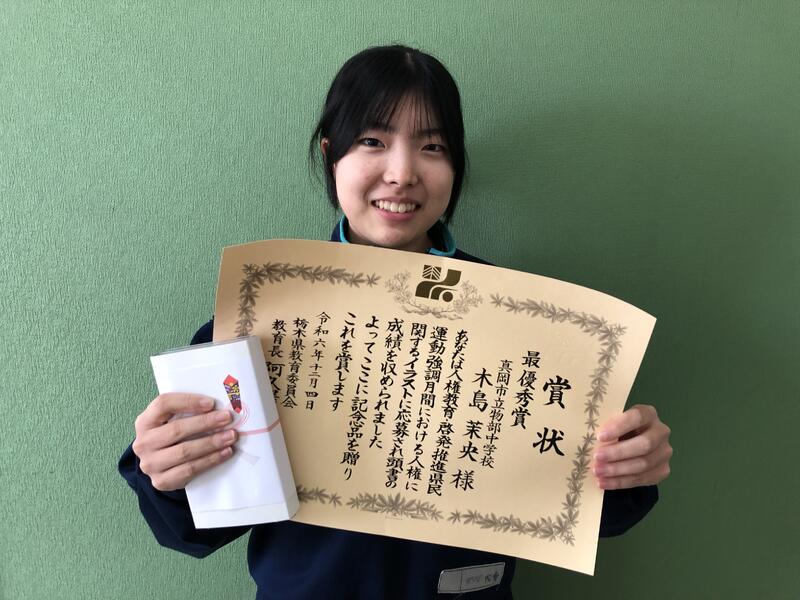 賞状
最優秀賞
真岡市立物部中学校
木島茉央様
あなたは人権教育・啓発推進県民
運動強調月間における人権に
関するイラストに応募され頭書の
成績を収められました
よってここに記念品を贈り
これを賞します
令和六年十二月四日
栃木県教育委員会
教育長 阿久